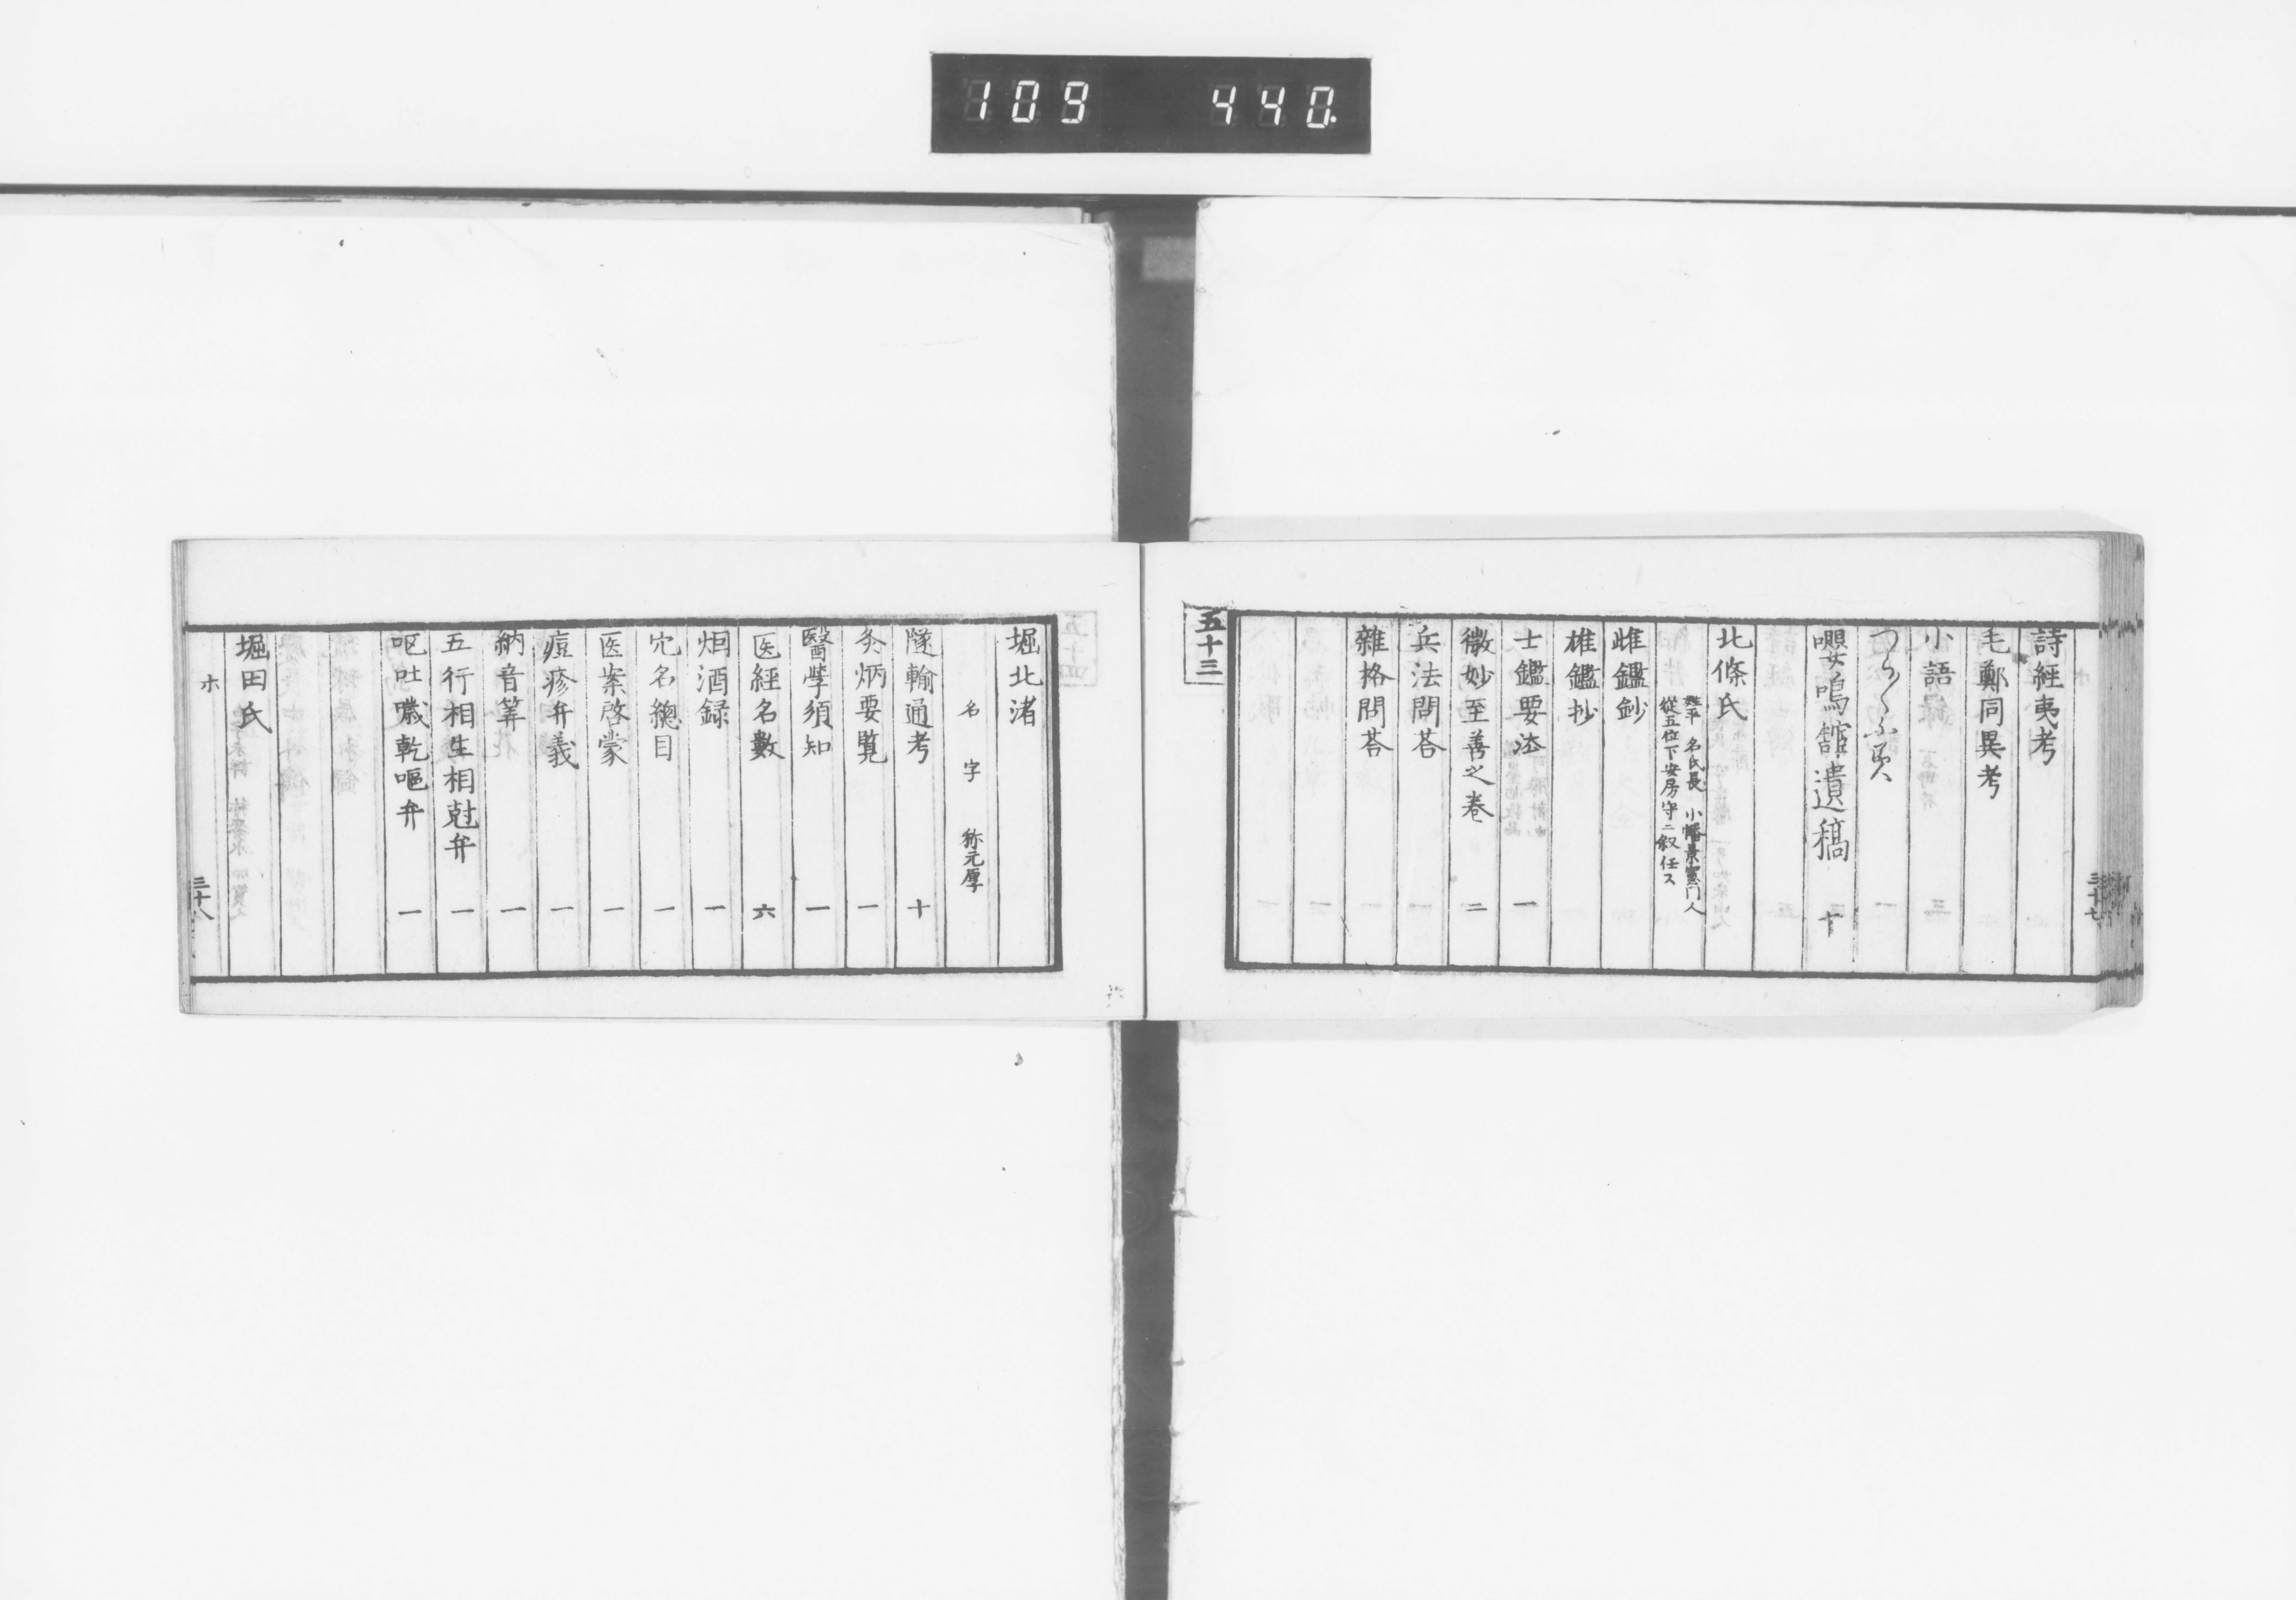 109 440
詩經夷考
毛鄭同異考
小語 三
嚶鳴館遺稿 十
北條氏
姓平 名氏長 小幡景憲門人
從五位下安房守ニ叙任ス
雌鑑鈔
雄鑑抄
士鑑要法 一
微妙至善之巻 二
兵法問荅
雜格問荅
五十三
三十七
堀北渚
名 字 称元厚
隧輸通考 十
灸焫要覧 一
醫學須知 一
医經名數 六
烟酒録 一
穴名總目 一
医案啓蒙 一
痘疹弁義 一
納音筭 一
五行相生相尅弁 一
呕吐噦乾嘔弁 一
堀田氏
ホ
三十八